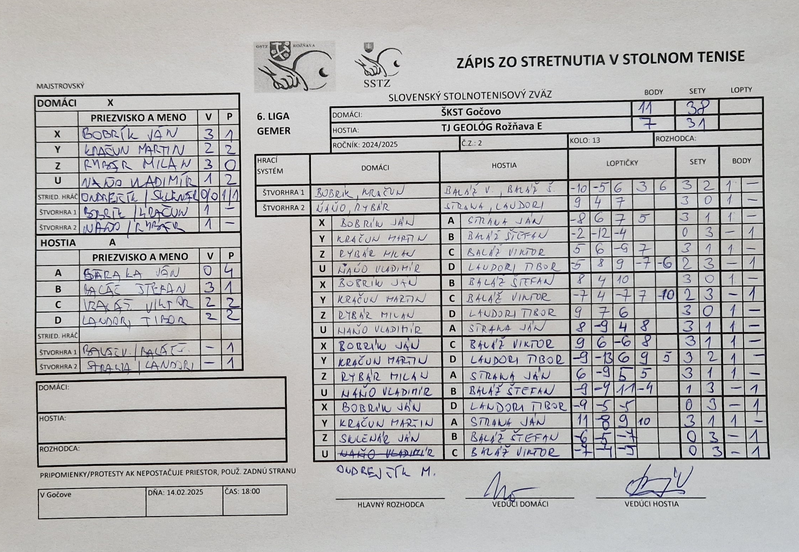 SSTZ ROŽŇAVA
SSTZ
ZÁPIS ZO STRETNUTIA V STOLNOM TENISE
SLOVENSKÝ STOLNOTENISOVÝ ZVÄZ
MAJSTROVSKÝ
DOMÁCI X
PRIEZVISKO A MENO V P
X BOBRÍK JÁN 3 1
Y KRAČUN MARTIN 2 2
Z RYBÁR MILAN 3 0
U NAŇO VLADIMÍR 1 2
STRIED. HRÁČ ONDREJČÍK / SKLENÁR 0/0 1/1
ŠTVORHRA 1 BOBRÍK / KRAČUN 1 -
ŠTVORHRA 2 NAŇO / RYBÁR 1 -
HOSTIA A
PRIEZVISKO A MENO V P
A STRAKA JÁN 0 4
B BALÁŽ ŠTEFAN 3 1
C BALÁŽ VIKTOR 2 2
D LANDORI TIBOR 2 2
STRIED. HRÁČ
ŠTVORHRA 1 BALÁŽ V. / BALÁŽ Š. - 1
ŠTVORHRA 2 STRAKA / LANDORI - 1
DOMÁCI:
HOSTIA:
ROZHODCA:
PRIPOMIENKY/PROTESTY AK NEPOSTAČUJE PRIESTOR, POUŽ. ZADNÚ STRANU
V Gočove DŇA: 14.02.2025 ČAS: 18:00
6. LIGA
GEMER
BODY SETY LOPTY
DOMÁCI: ŠKST Gočovo 11 38
HOSTIA: TJ GEOLÓG Rožňava E 7 31
ROČNÍK: 2024/2025 Č.Z.: 2 KOLO: 13 ROZHODCA:
HRACÍ SYSTÉM DOMÁCI HOSTIA LOPTIČKY SETY BODY
ŠTVORHRA 1 BOBRÍK, KRAČUN BALÁŽ V., BALÁŽ Š. -10 -5 6 3 6 3 2 1 -
ŠTVORHRA 2 NAŇO, RYBÁR STRAKA, LANDORI 9 4 7 3 0 1 -
X BOBRÍK JÁN A STRAKA JÁN -8 6 7 5 3 1 1 -
Y KRAČUN MARTIN B BALÁŽ ŠTEFAN -2 -12 -4 0 3 - 1
Z RYBÁR MILAN C BALÁŽ VIKTOR 5 6 -9 7 3 1 1 -
U NAŇO VLADIMÍR D LANDORI TIBOR -5 8 9 -7 -6 2 3 - 1
X BOBRÍK JÁN B BALÁŽ ŠTEFAN 8 4 10 3 0 1 -
Y KRAČUN MARTIN C BALÁŽ VIKTOR -7 4 -7 7 -10 2 3 - 1
Z RYBÁR MILAN D LANDORI TIBOR 9 7 6 3 0 1 -
U NAŇO VLADIMÍR A STRAKA JÁN 8 -9 4 8 3 1 1 -
X BOBRÍK JÁN C BALÁŽ VIKTOR 9 6 -6 8 3 1 1 -
Y KRAČUN MARTIN D LANDORI TIBOR -9 -13 6 9 5 3 2 1 -
Z RYBÁR MILAN A STRAKA JÁN 6 -9 5 5 3 1 1 -
U NAŇO VLADIMÍR B BALÁŽ ŠTEFAN -9 -4 11 -4 1 3 - 1
X BOBRÍK JÁN D LANDORI TIBOR -9 -5 -5 0 3 - 1
Y KRAČUN MARTIN A STRAKA JÁN 11 -8 9 10 3 1 1 -
Z SKLENÁR JÁN B BALÁŽ ŠTEFAN -6 -5 -7 0 3 - 1
U NAŇO VLADIMÍR C BALÁŽ VIKTOR -7 -4 -3 0 3 - 1
HLAVNÝ ROZHODCA VEDÚCI DOMÁCI VEDÚCI HOSTIA